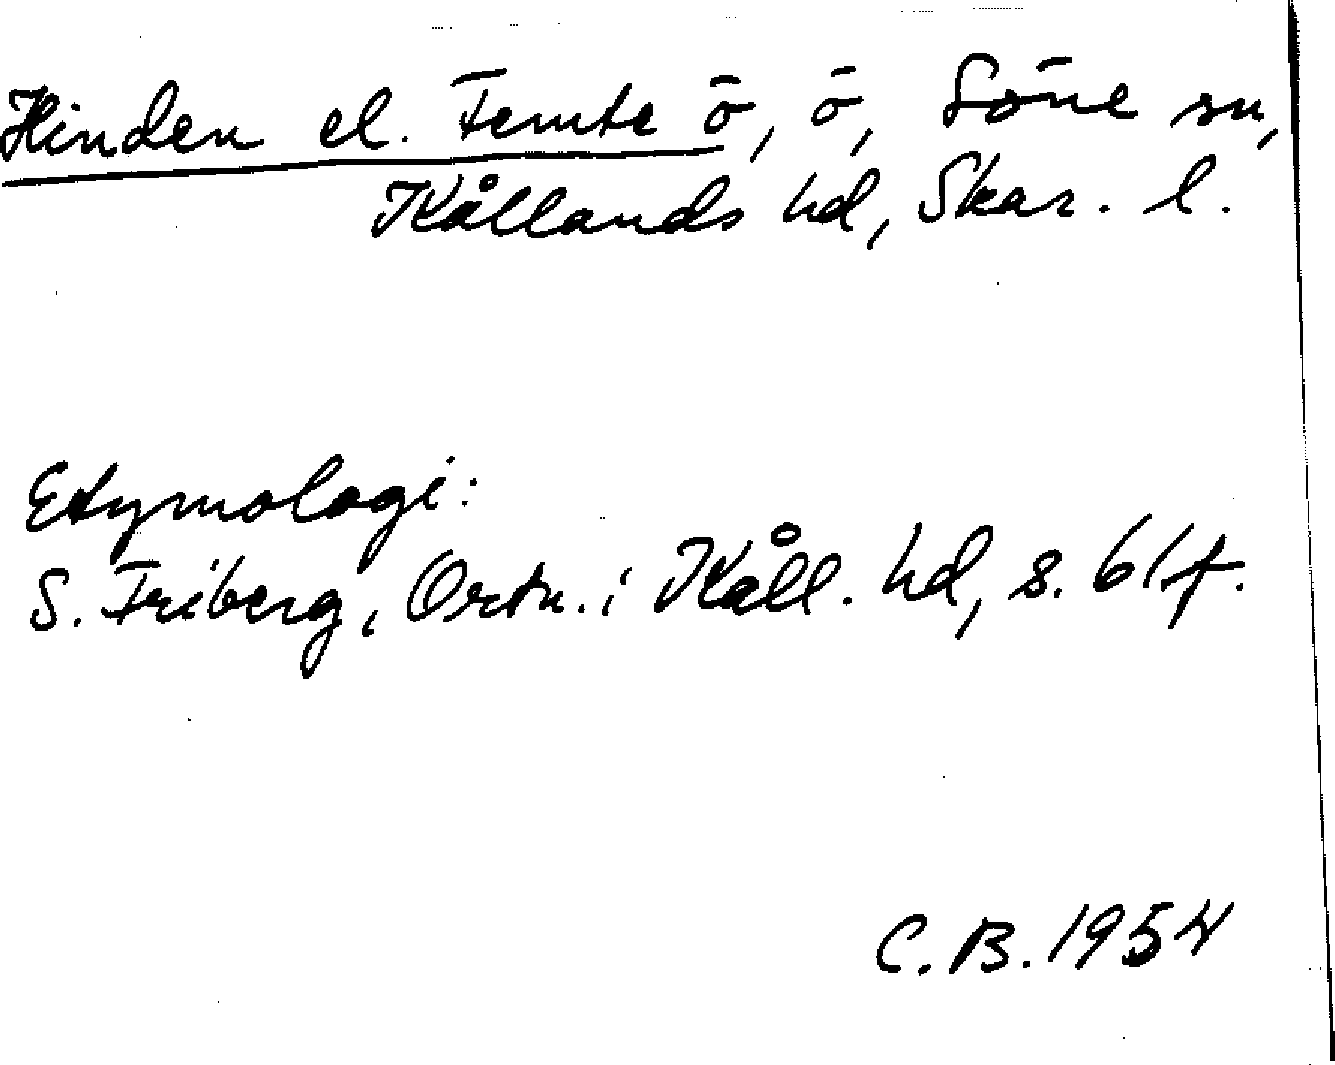 Hinden el. Femte ö, ö, Söne sn,
Kållands hd, Skar. l.
Etymologi:
S. Friberg, Ortn. i Kåll. hd, s. 61f.
C.B. 1954